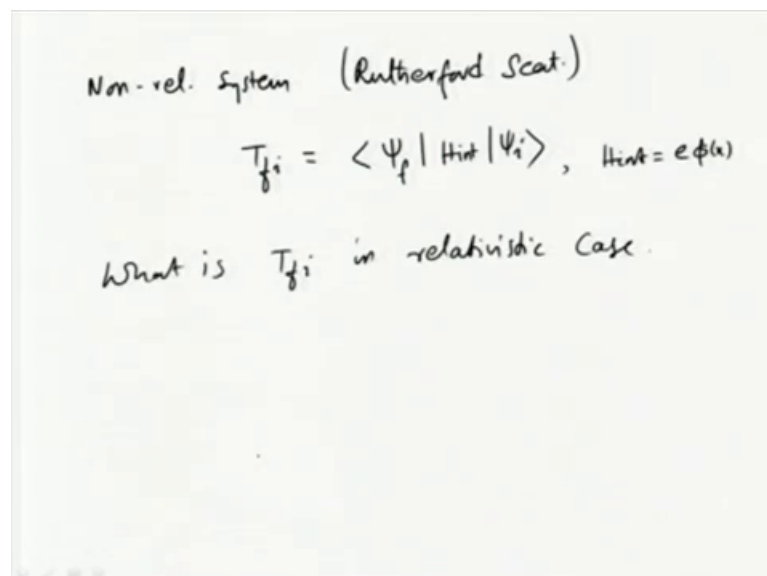 Non-rel. System (Rutherford Scat.)
T_fi = <Ψ_f | Hint | Ψ_i>, Hint = e φ(x)
What is T_fi in relativistic Case.